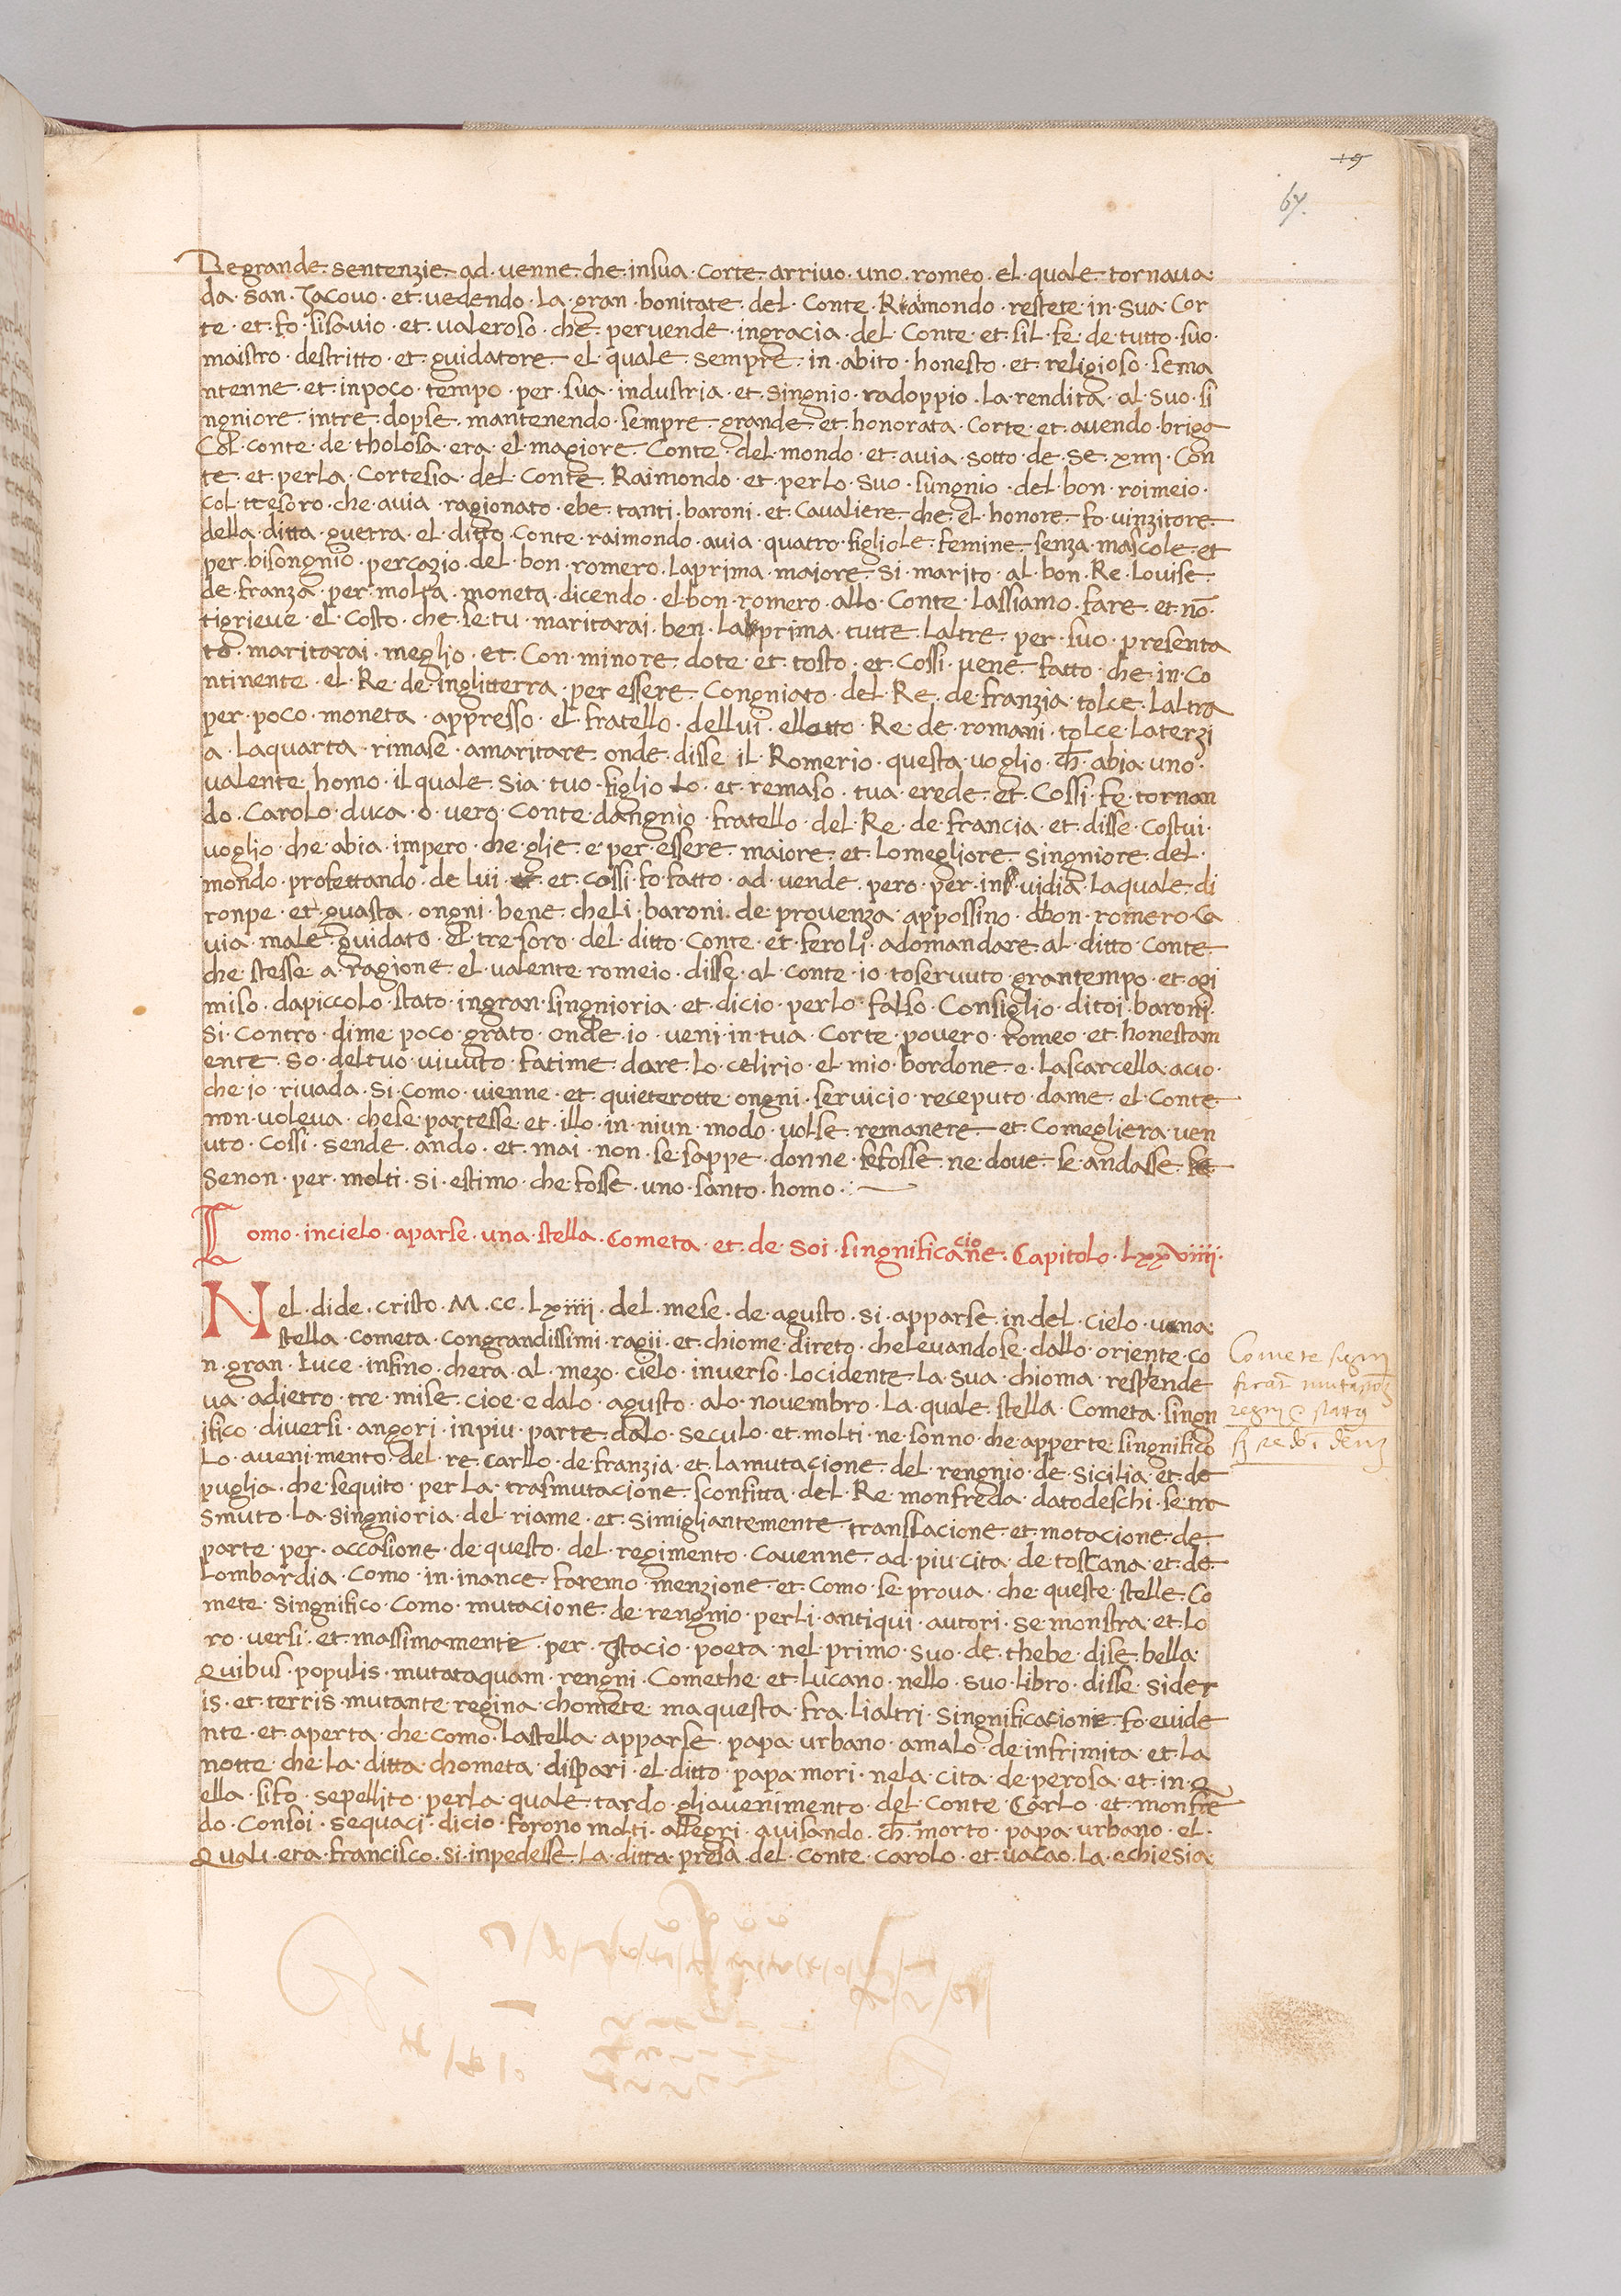 67.
De grande. sentenzie. ad. uenne. che. insua. Corte. arriuo. uno. romeo. el. quale. tornaua.
da. san. Jacouo. et. uedendo. La. gran. bonitate. del. Conte. Raimondo. restete. in. sua. Cor
te. et. fo. sisauio. et. ualeroso. che. peruende. ingracia. del. Conte. et. sil. fe. de. tutto. suo.
maistro. destritto. et. guidatore. el. quale. sempre. in. abito. honesto. et. religioso. sema
ntenne. et. inpoco. tempo. per. sua. industria. et. singnio. radoppio. La. rendita. al. suo. si
ngniore. intre. dopse. mantenendo. sempre. grande. et. honorata. Corte. et. auendo. briga
Col. conte. de. tholosa. era. el. magiore. Conte. del. mondo. et. auia. sotto. de. se. xiiii. Con
te. et. perla. Cortesia. del. Conte. Raimondo. et. perlo. suo. sungnio. del. bon. roimeio.
col. ttesoro. che. auia. ragionato. ebe. tanti. baroni. et. Caualiere. che. el. honore. fo. uinzitore.
della. ditta. guerra. el. ditto. Conte. raimondo. auia. quatro. figliole. femine. senza. mascole. et
per. bisongnio. percazio. del. bon. romero. Laprima. maiore. si. marito. al. bon. Re. Louise.
de. franza. per. molta. moneta. dicendo. el. bon. romero. allo. Conte. Lassiamo. fare. et. nō.
tigrieue. el. Costo. che. se. tu. maritarai. ben. La. prima. tutte. Laltre. per. suo. presenta
to. maritarai. meglio. et. Con. minore. dote. et. tosto. et. Cossi. uene. fatto. che. in. Co
ntinente. el. Re. de. inglitterra. per. essere. Congniato. del. Re. de. franzia. tolce. Laltra
per. poco. moneta. appresso. el. fratello. dellui. ellotto. Re. de. romani. tolce. Laterzi
a. Laquarta. rimase. amaritare. onde. disse. il. Romerio. questa. uoglio. ch̄. abia. uno.
ualente. homo. il quale. sia. tuo. figliolo. et. remaso. tua. erede. et. Cossi. fe. tornan
do. Carolo. duca. o. uero. Conte. dangnio. fratello. del. Re. de. francia. et. disse. Costui.
uoglio. che. abia. impero. che. glie. e. per. essere. maiore. et. Lomegliore. singniore. del.
mondo. profettando. de. lui. et. cossi. fo. fatto. ad. uende. pero. per. inuidia. Laquale. di
ronpe. et. guasta. ongni. bene. cheli. baroni. de. prouenza. appossino. bon. romero. Ca
uia. male. guidato. el. tresoro. del. ditto. Conte. et. feroli. adomandare. al. ditto. Conte.
che. stesse. a. ragione. el. ualente. romeio. disse. al. conte. io. toseruuto. grantempo. et. ogi
miso. dapiccolo. stato. ingran. singnioria. et. dicio. perlo. falso. Consiglio. ditoi. baroni.
si. Contro. dime. poco. grato. onde. io. ueni. in. tua. Corte. pouero. romeo. et. honestam
ente. so. deltuo. uiuuto. fatime. dare. Lo. celirio. el. mio. bordone. e. Lascarcella. acio.
che. io. riuada. si. Como. uienne. et. quieterotte. ongni. seruicio. receputo. dame. el. Conte.
non. uoleua. chese. partesse. et. illo. in. niun. modo. uolse. remanere. et. Comegliera. uen
uto. Cossi. sende. ando. et. mai. non. se. sappe. donne. sefosse. ne. doue. se. andasse.
senon. per. molti. si. estimo. che. fosse. uno. santo. homo.
Como. incielo. aparse. una. stella. Cometa. et. de. soi. singnificacione. Capitolo. Lxxviiii.
Nel. dide. cristo. M. cc. Lxiiii. del. mese. de. agusto. si. apparse. in. del. cielo. una.
stella. cometa. Congrandissimi. ragii. et. chiome. direto. cheleuandose. dallo. oriente. co
n. gran. Luce. infino. chera. al. mezo. cielo. inuerso. Locidente. La. sua. chioma. resplende
ua. adietro. tre. mise. cioe. e. dalo. agusto. alo. nouembro. La. quale. stella. Cometa. singn
ifico. diuersi. angori. inpiu. parte. dalo. seculo. et. molti. ne. sonno. che. apperte. singnifico
Lo. auenimento. del. re. Carllo. de. franzia. et. Lamutacione. del. rengnio. de. Sicilia. et. de
puglia. che. sequito. per. La. trasmutacione. sconfitta. del. Re. monfreda. datodeschi. se. tra
smuto. La. singnioria. del. riame. et. simigliantemente. translacione. et. motacione. de.
parte. per. accasione. de. questo. del. regimento. Cauenne. ad. piu. cita. de. toscana. et. de.
Lombardia. Como. in. inance. faremo. menzione. et. Como. se. proua. che. queste. stelle. Co
mete. singnifico. Como. mutacione. de. rengnio. perli. antiqui. autori. se. monstra. et. lo
ro. uersi. et. massimamente. per. Stacio. poeta. nel. primo. suo. de. thebe. dise. bella.
Quibus. populis. mutataquam. rengni. Comethe. et. Lucano. nello. suo. libro. disse. sider
is. et. terris. mutante. regina. chomete. maquesta. fra. lialtri. singnificacione. fo. euide
nte. et. aperta. che. como. Lastella. apparse. papa. urbano. amalo. de. infrimita. et. La
notte. che. La. ditta. chometa. dispari. el. ditto. papa. mori. nela. cita. de. perosa. et. in. q
ella. sifo. sepellito. perla. quale. tardo. gliauenimento. del. Conte. Carlo. et. monfre
do. Consoi. sequaci. dicio. forono. molti. allegri. auisando. ch̄. morto. papa. urbano. el.
Quali. era. francisco. si. inpedesse. La. ditta. presa. del. Conte. Carolo. et. uacao. La. echiesia.
Comete signi
ficāt